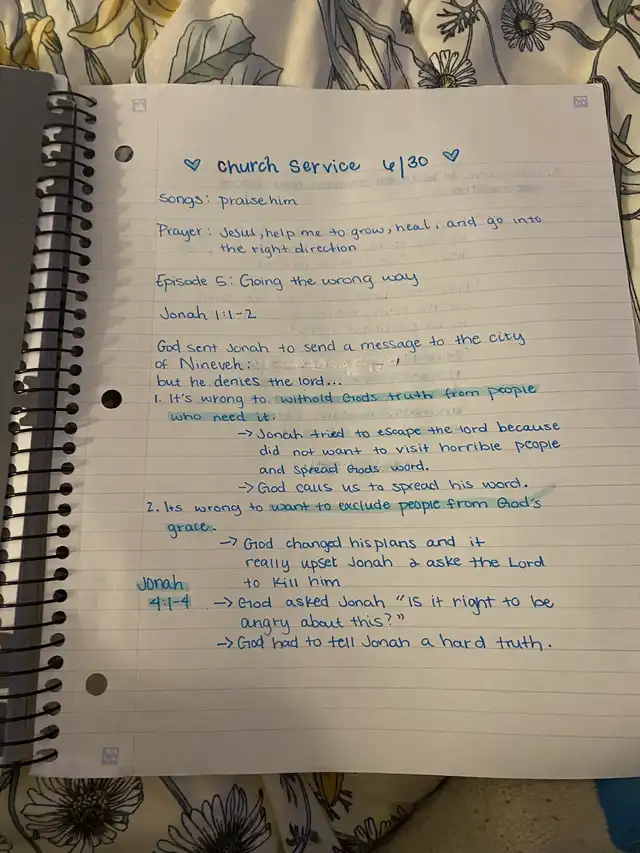 ♡ Church Service 6/30 ♡
Songs: praise him
Prayer: Jesus, help me to grow, heal, and go into
the right direction
Episode 5: Going the wrong way
Jonah 1:1-2
God sent Jonah to send a message to the city
of Nineveh:
but he denies the lord...
1. It's wrong to withold Gods truth from people
who need it.
→ Jonah tried to escape the lord because
did not want to visit horrible people
and spread Gods word.
→ God calls us to spread his word.
2. Its wrong to want to exclude people from God's
grace.
→ God changed his plans and it
really upset Jonah & aske the Lord
to kill him
Jonah
4:1-4
→ God asked Jonah "Is it right to be
angry about this?"
→ God had to tell Jonah a hard truth.